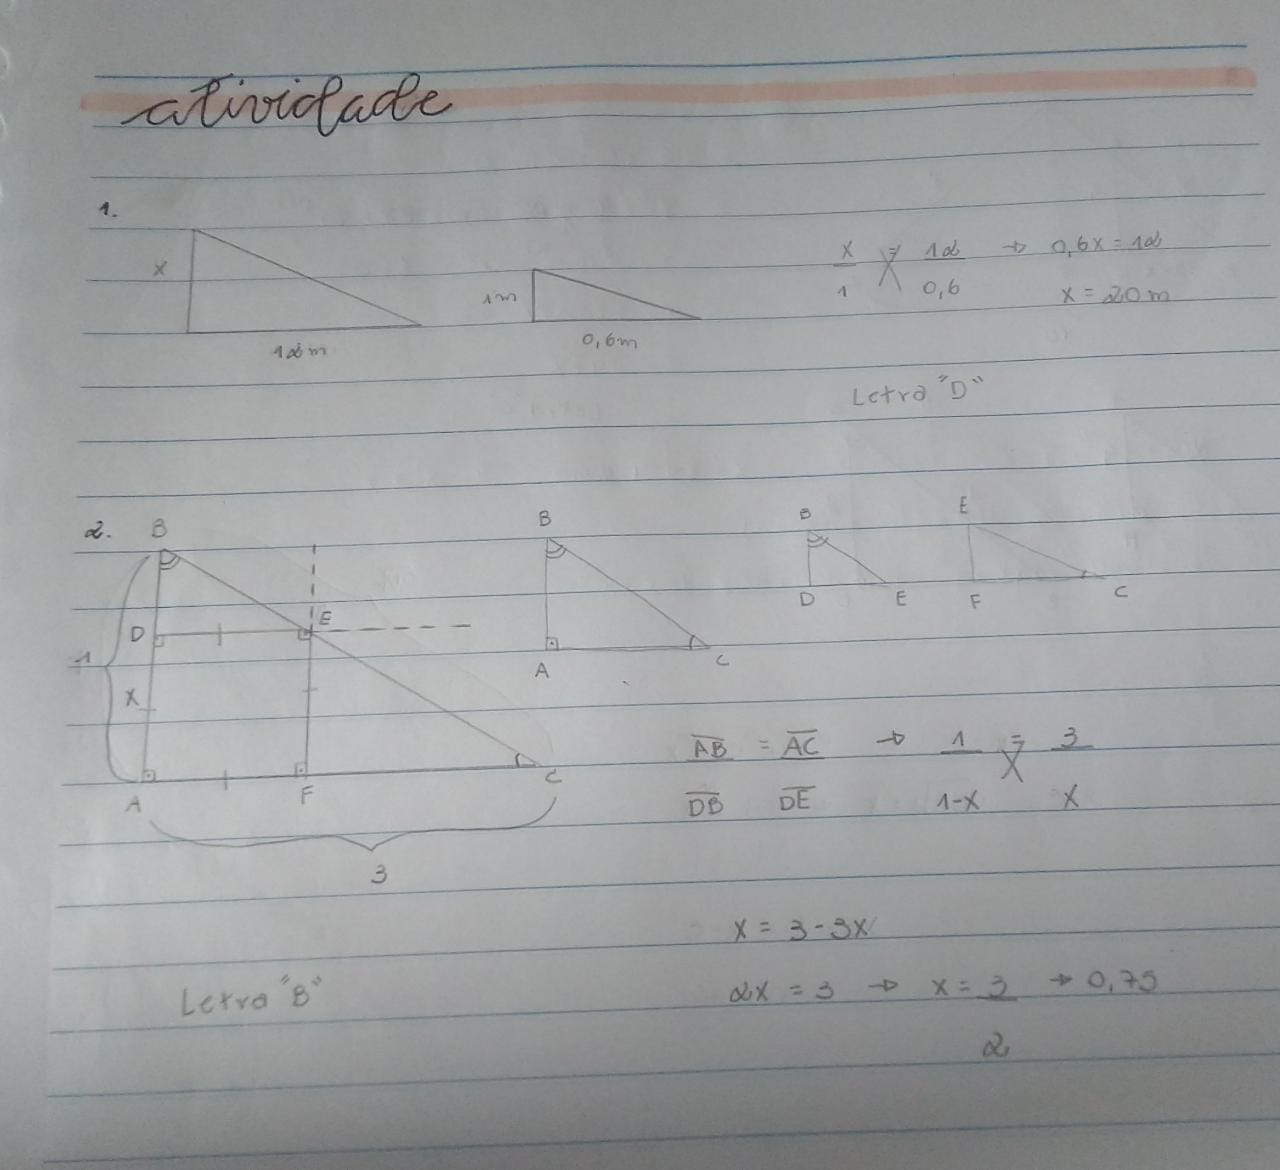 atividade
1.
x
12m
1m
0,6m
x/1 = 12/0,6 → 0,6x = 12
x = 20m
Letra "D"
2.
B
D
E
1
x
A
F
C
3
B
A
C
B
D
E
E
F
C
AB/DB = AC/DE → 1/1-x = 3/x
x = 3-3x
2x = 3 → x = 3/2 → 0,75
Letra "B"